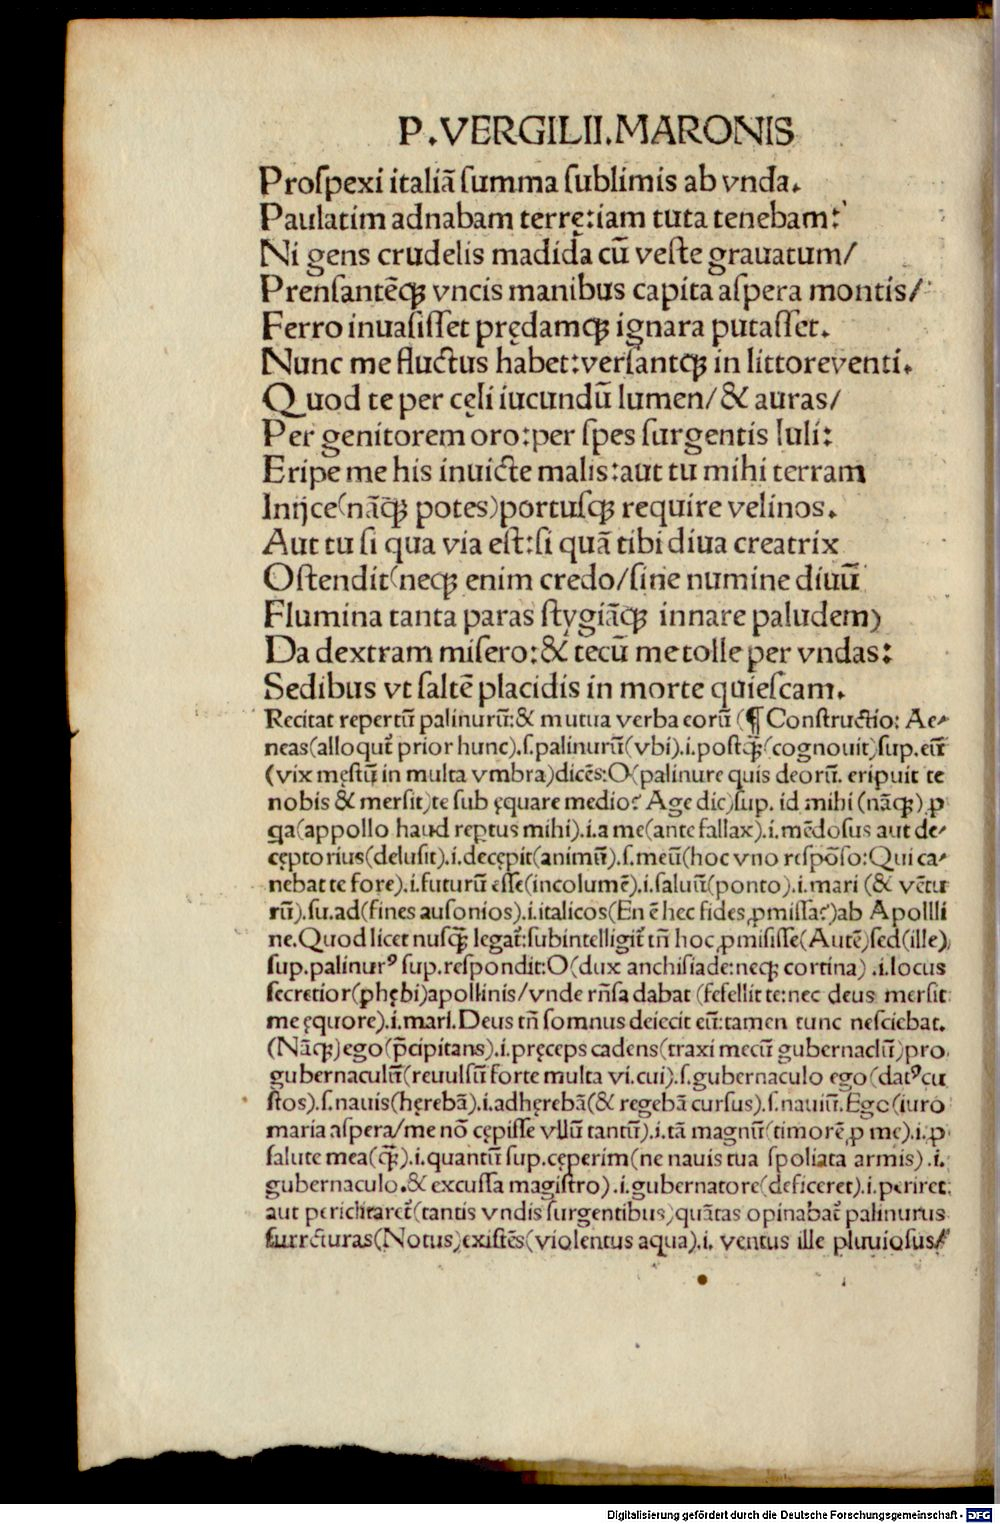 P.VERGILII.MARONIS
Proſpexi italiā ſumma ſublimis ab vnda.
Paulatim adnabam terrę:iam tuta tenebam:
Ni gens crudelis madida cū veſte grauatum/
Prenſantēqꝫ vncis manibus capita aſpera montis/
Ferro inuaſiſſet prędamqꝫ ignara putaſſet.
Nunc me fluctus habet:verſantqꝫ in littore venti.
Quod te per cęli iucundū lumen/& auras/
Per genitorem oro:per ſpes ſurgentis Iuli:
Eripe me his inuicte malis:aut tu mihi terram
Inijce(nāqꝫ potes)portuſqꝫ require velinos.
Aut tu ſi qua via eſt:ſi quā tibi diua creatrix
Oſtendit(neqꝫ enim credo/ſine numine diuū
Flumina tanta paras ſtygiāqꝫ innare paludem)
Da dextram miſero:& tecū me tolle per vndas:
Sedibus vt ſaltē placidis in morte quieſcam.
Recitat repertū palinurū:& mutua verba eorū (¶ Conſtructio: Ae⸗
neas(alloquit̄ prior hunc).ſ.palinurū(vbi).i.poſtqꝫ̄(cognouit)ſup.eū
(vix męſtū in multa vmbra)dicēs:O(palinure quis deorū. eripuit te
nobis & merſit)te ſub ęquare medio? Age dic)ſup. id mihi (nāqꝫ) ꝑ
qa(appollo haud reptus mihi).i.a me(ante fallax).i.mēdoſus aut de⸗
cęptorius(deluſit).i.decępit(animū).ſ.meū(hoc vno reſpōſo:Qui ca⸗
nebat te fore).i.futurū eſſe(incolumē).i.ſaluū(ponto).i.mari (& vētu
rū).ſu.ad(fines auſonios).i.italicos(En ē hec fides ꝓmiſſa?)ab Apollli
ne.Quod licet nuſqꝫ̄ legat̄:ſubintelligit̄ tn̄ hoc ꝓmiſiſſe(Autē)ſed(ille)
ſup.palinurꝰ ſup.reſpondit:O(dux anchiſiade:neqꝫ cortina) .i.locus
ſecretior(phębi)apollinis/vnde rn̄ſa dabat (fefellit te:nec deus merſit
me ęquore).i.mari.Deus tn̄ ſomnus deiecit eū:tamen tunc neſciebat.
(Nāqꝫ)ego(p̄cipitans).i.pręceps cadens(traxi mecū gubernaclū)pro
gubernaculū(reuulſū forte multa vi.cui).ſ.gubernaculo ego(datꝰcu
ſtos).ſ.nauis(hęrebā).i.adhęrebā(& regebā curſus).ſ.nauiū.Ego(iuro
maria aſpera/me nō cępiſſe vllū tantū).i.tā magnū(timorē ꝓ me).i.ꝓ
ſalute mea(qꝫ̄).i.quantū ſup.cęperim(ne nauis tua ſpoliata armis) .i.
gubernaculo.& excuſſa magiſtro).i.gubernatore(deficeret).i.periret
aut periclitaret̄(tantis vndis ſurgentibus)quātas opinabat̄ palinurus
ſurrecturas(Notus)exiſtēs(violentus aqua).i. ventus ille pluuioſus/
Digitalisierung gefördert durch die Deutsche Forschungsgemeinschaft - DFG